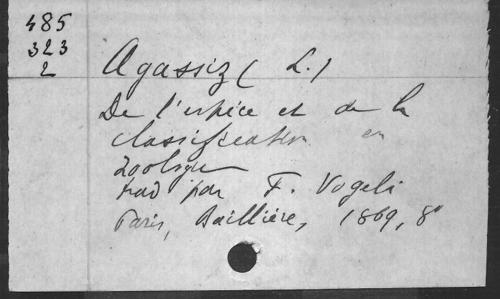 485
323
2
Agassiz (L.)
De l'espèce et de la
classification en
zoologie
trad par F. Vogeli
Paris, Baillière, 1869, 8°